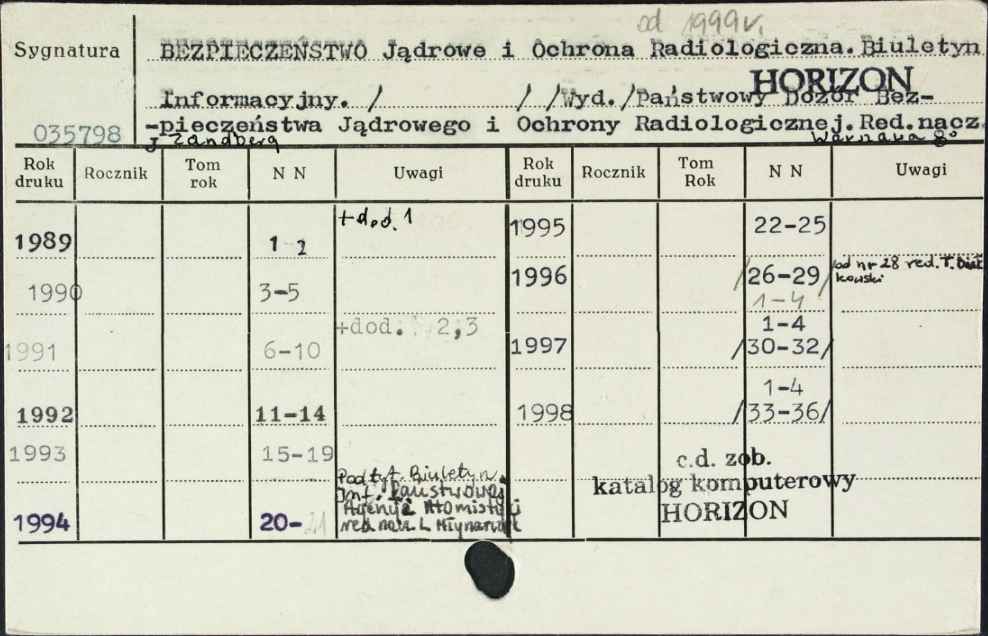 od 1999r.
Sygnatura
BEZPIECZEŃSTWO Jądrowe i Ochrona Radiologiczna. Biuletyn
HORIZON
Informacyjny. / / /Wyd./Państwowy Dozór Bez-
035798
-pieczeństwa Jądrowego i Ochrony Radiologicznej. Red. nacz.
J Zandberg
Rok druku Rocznik Tom rok N N Uwagi Rok druku Rocznik Tom Rok N N Uwagi
1989 1-2 +dod. 1 1995 22-25
1990 3-5 1996 /26-29/ od nr 28 red. T.
1-4
+dod. 2,3
1991 6-10 1997 1-4
/30-32/
1992 11-14 1998 1-4
/33-36/
1993 15-19
Pod tyt. Biuletyn
Inf. Państwowej
Agencji Atomistyki
1994 20-21 red nacz. L
c.d. zob.
katalog komputerowy
HORIZON